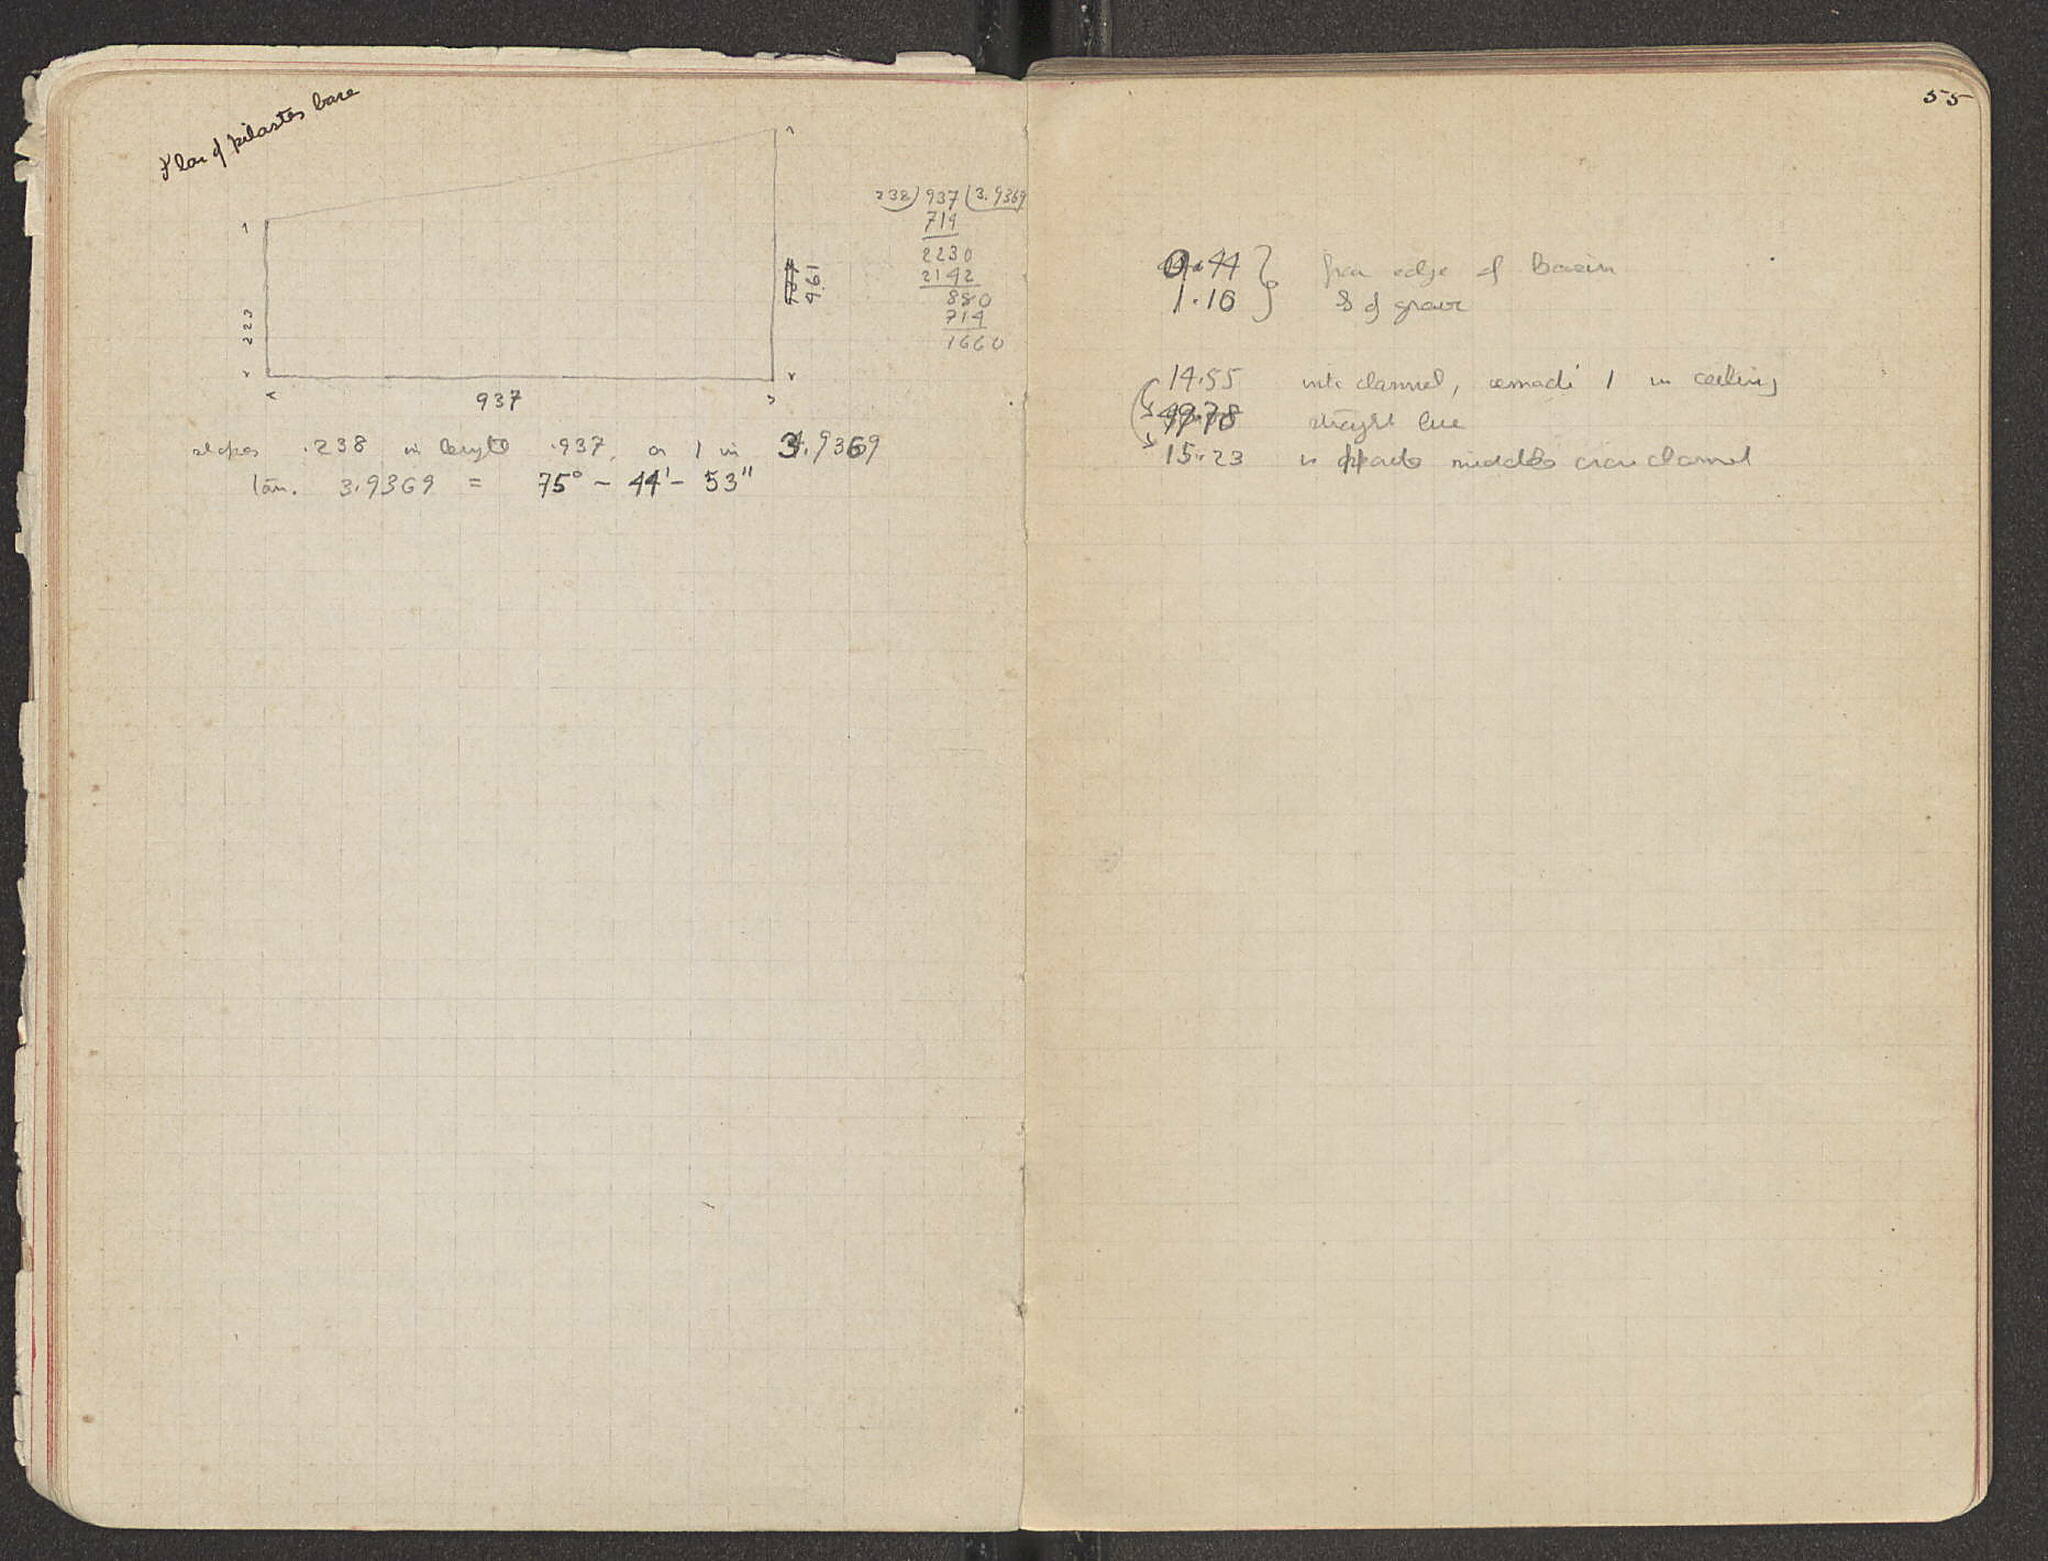 Plan of pilaster base
223
937
461
238) 937 (3.9369
714
2230
2142
880
714
1660
slopes .238 in length .937, or 1 in 3.9369
tan. 3.9369 = 75° - 44' - 53"
55
0.44 } from edge of Basin
1.16 } S of grave
14.55 into channel, 1 in ceiling
49.78 straight line
15.23 is opposite middle cross channel